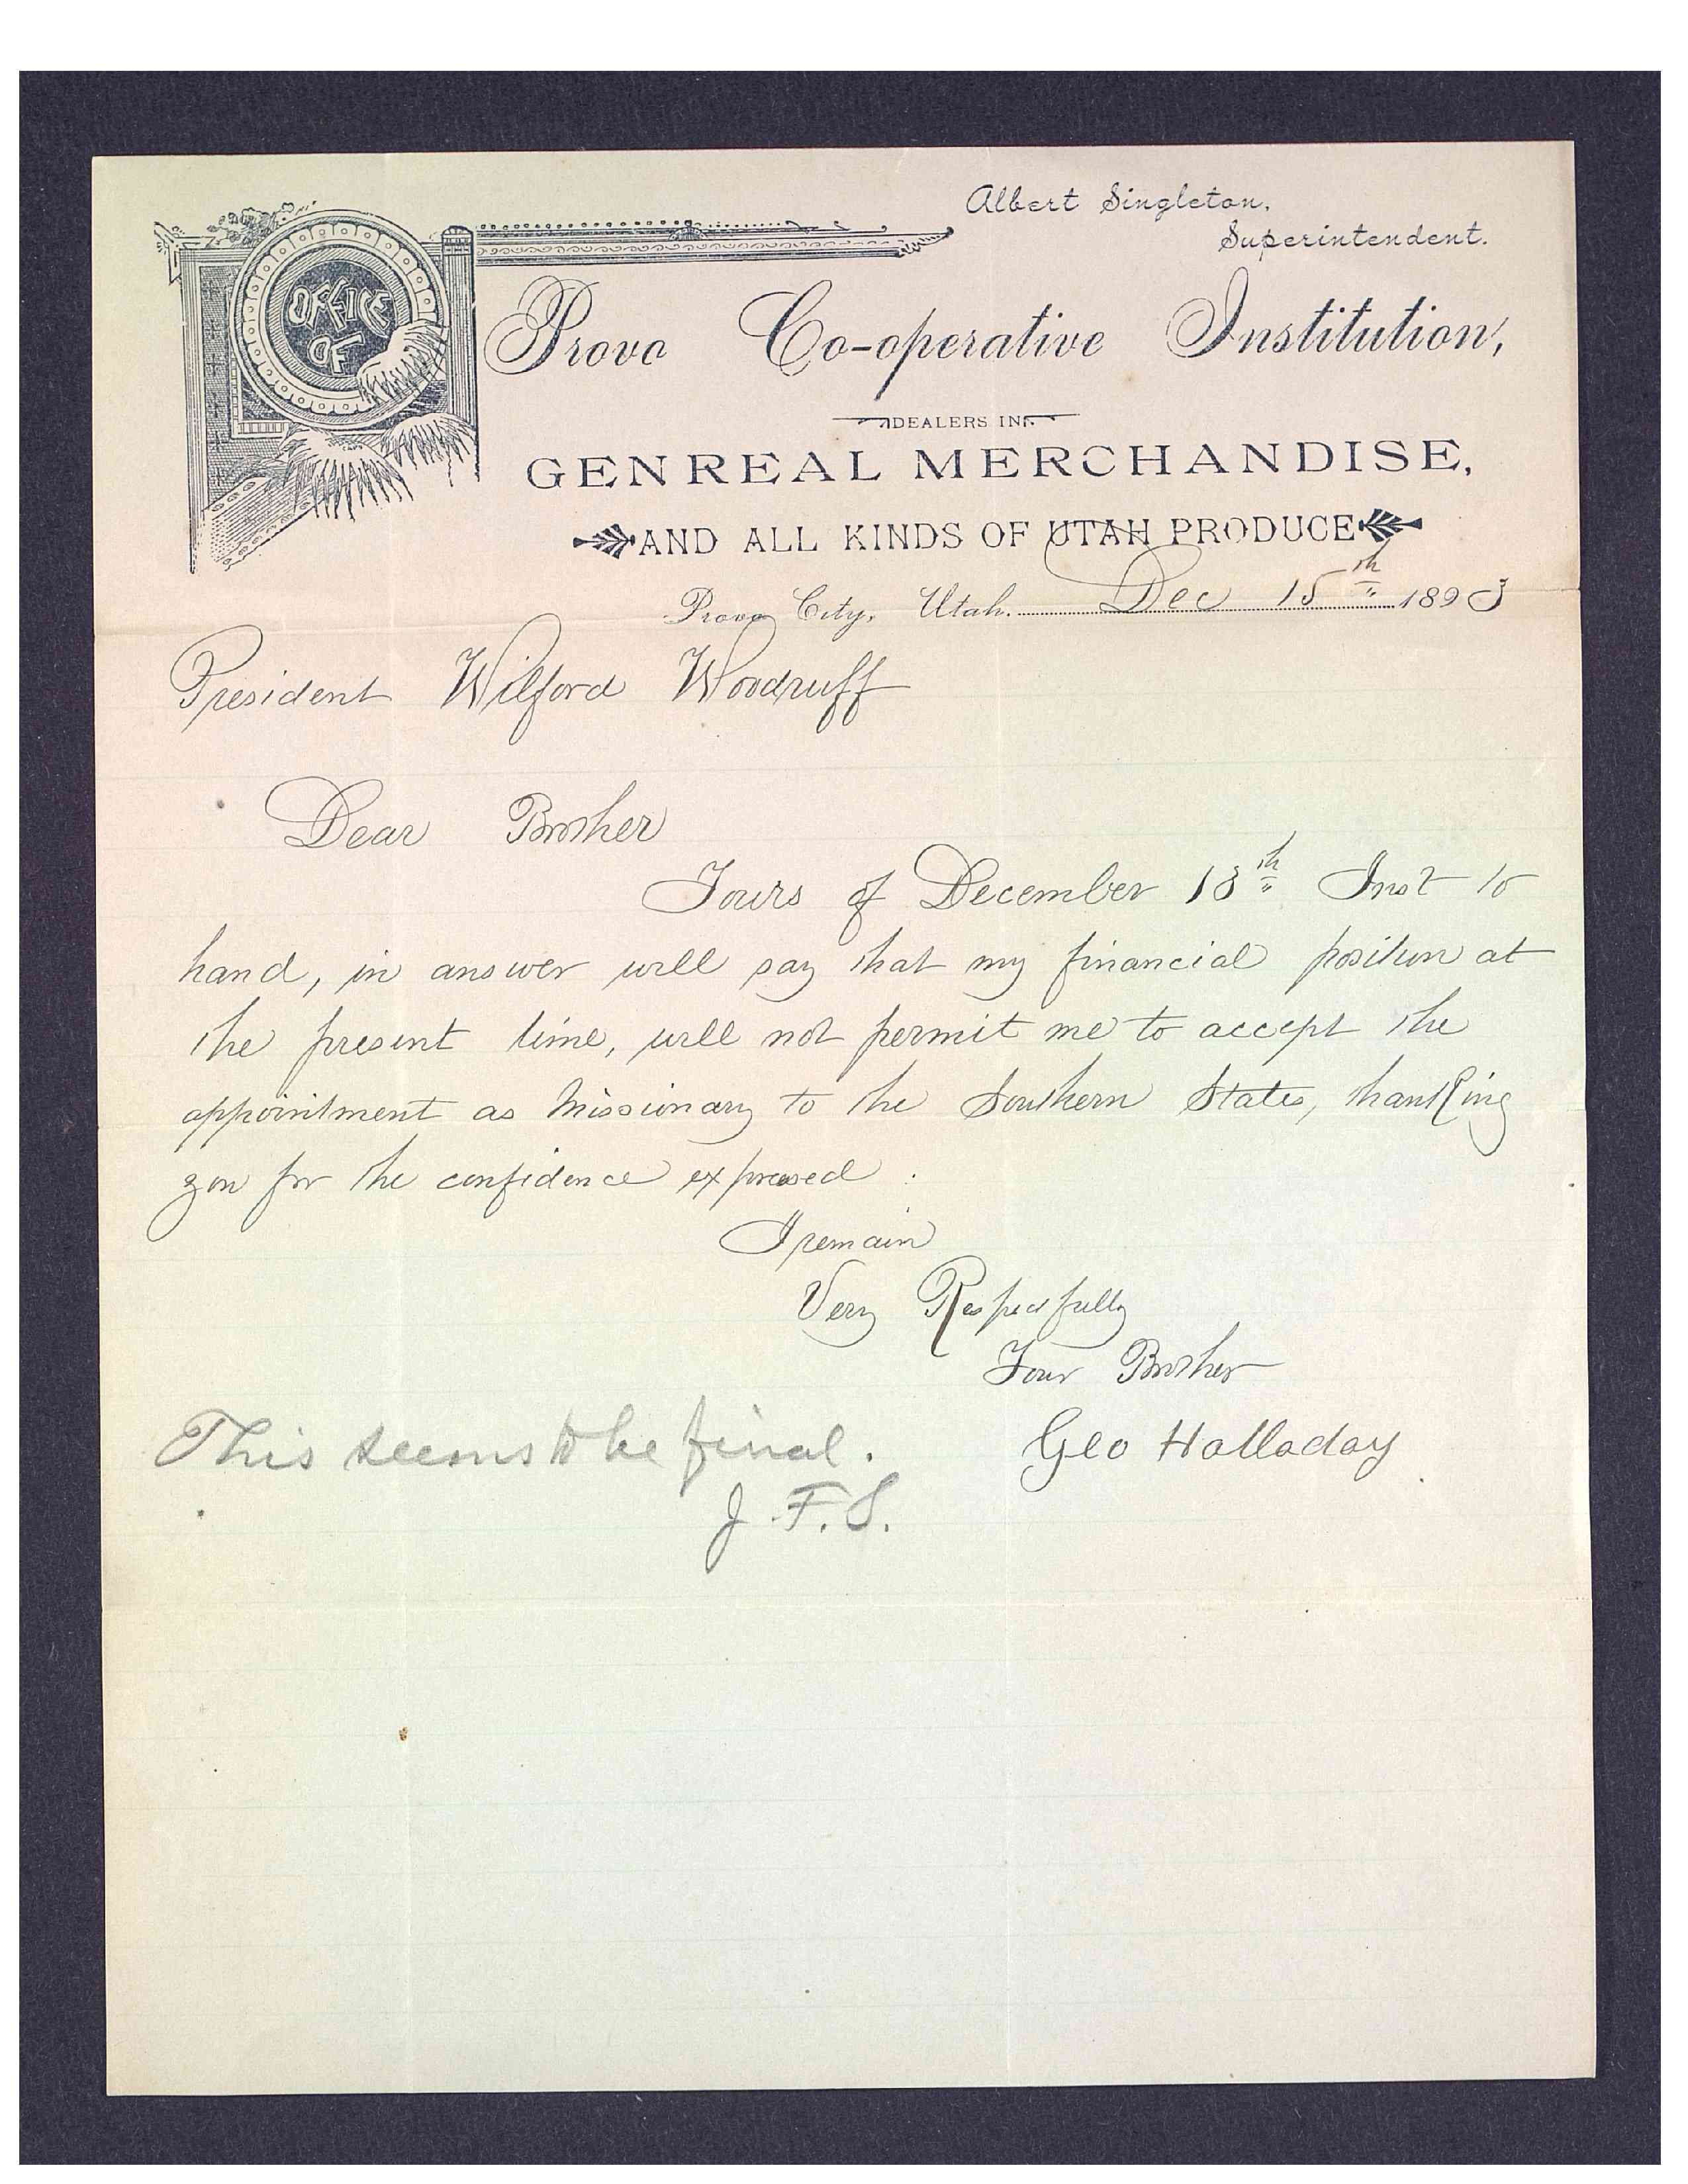 Albert Singleton,
Superintendent.
OFFICE
OF
Provo Co-operative Institution,
DEALERS IN
GENREAL MERCHANDISE,
AND ALL KINDS OF UTAH PRODUCE
Provo City, Utah. Dec 15th 1893
President Wilford Woodruff
Dear Brother
Yours of December 13th Inst to
hand, in answer will say that my financial position at
the present time, will not permit me to accept the
appointment as Missionary to the Southern States, thanking
you for the confidence expressed.
I remain
Very Respectfully
Your Brother
Geo Halladay
This seems to be final.
J. F. S.